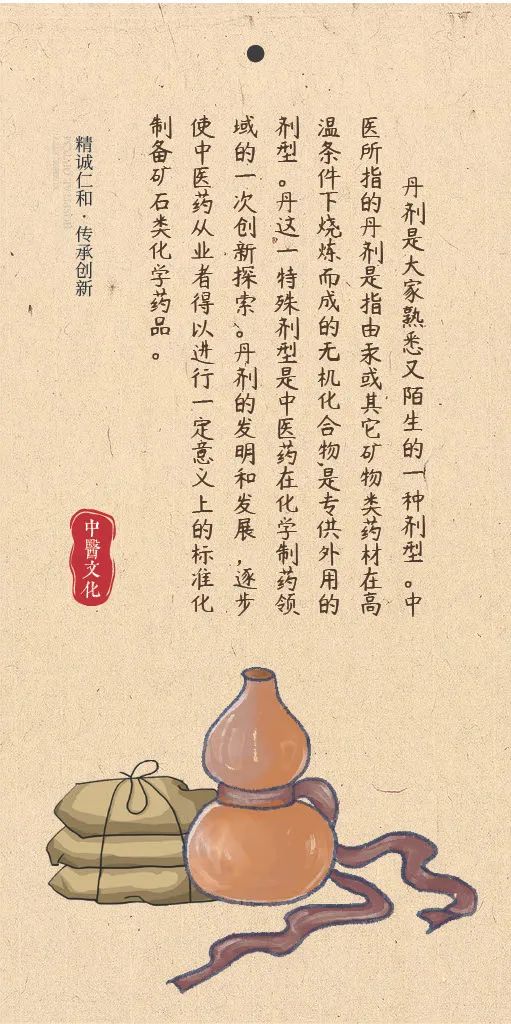 丹剂是大家熟悉又陌生的一种剂型。中
医所指的丹剂是指由汞或其它矿物类药材在高
温条件下烧炼而成的无机化合物,是专供外用的
剂型。丹这一特殊剂型是中医药在化学制药领
域的一次创新探索。丹剂的发明和发展,逐步
使中医药从业者得以进行一定意义上的标准化
制备矿石类化学药品。
精诚仁和·传承创新
中醫文化